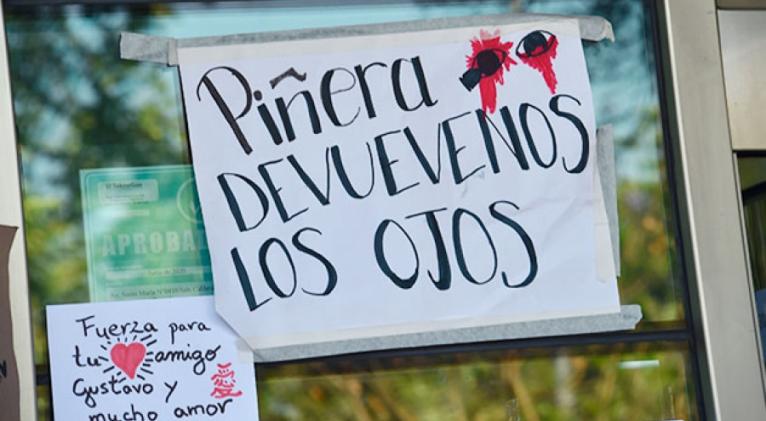 Piñera
DEVUEVENOS
LOS OJOS
APROBA
Fuerza para
tu amigo
Gustavo y
mucho amor